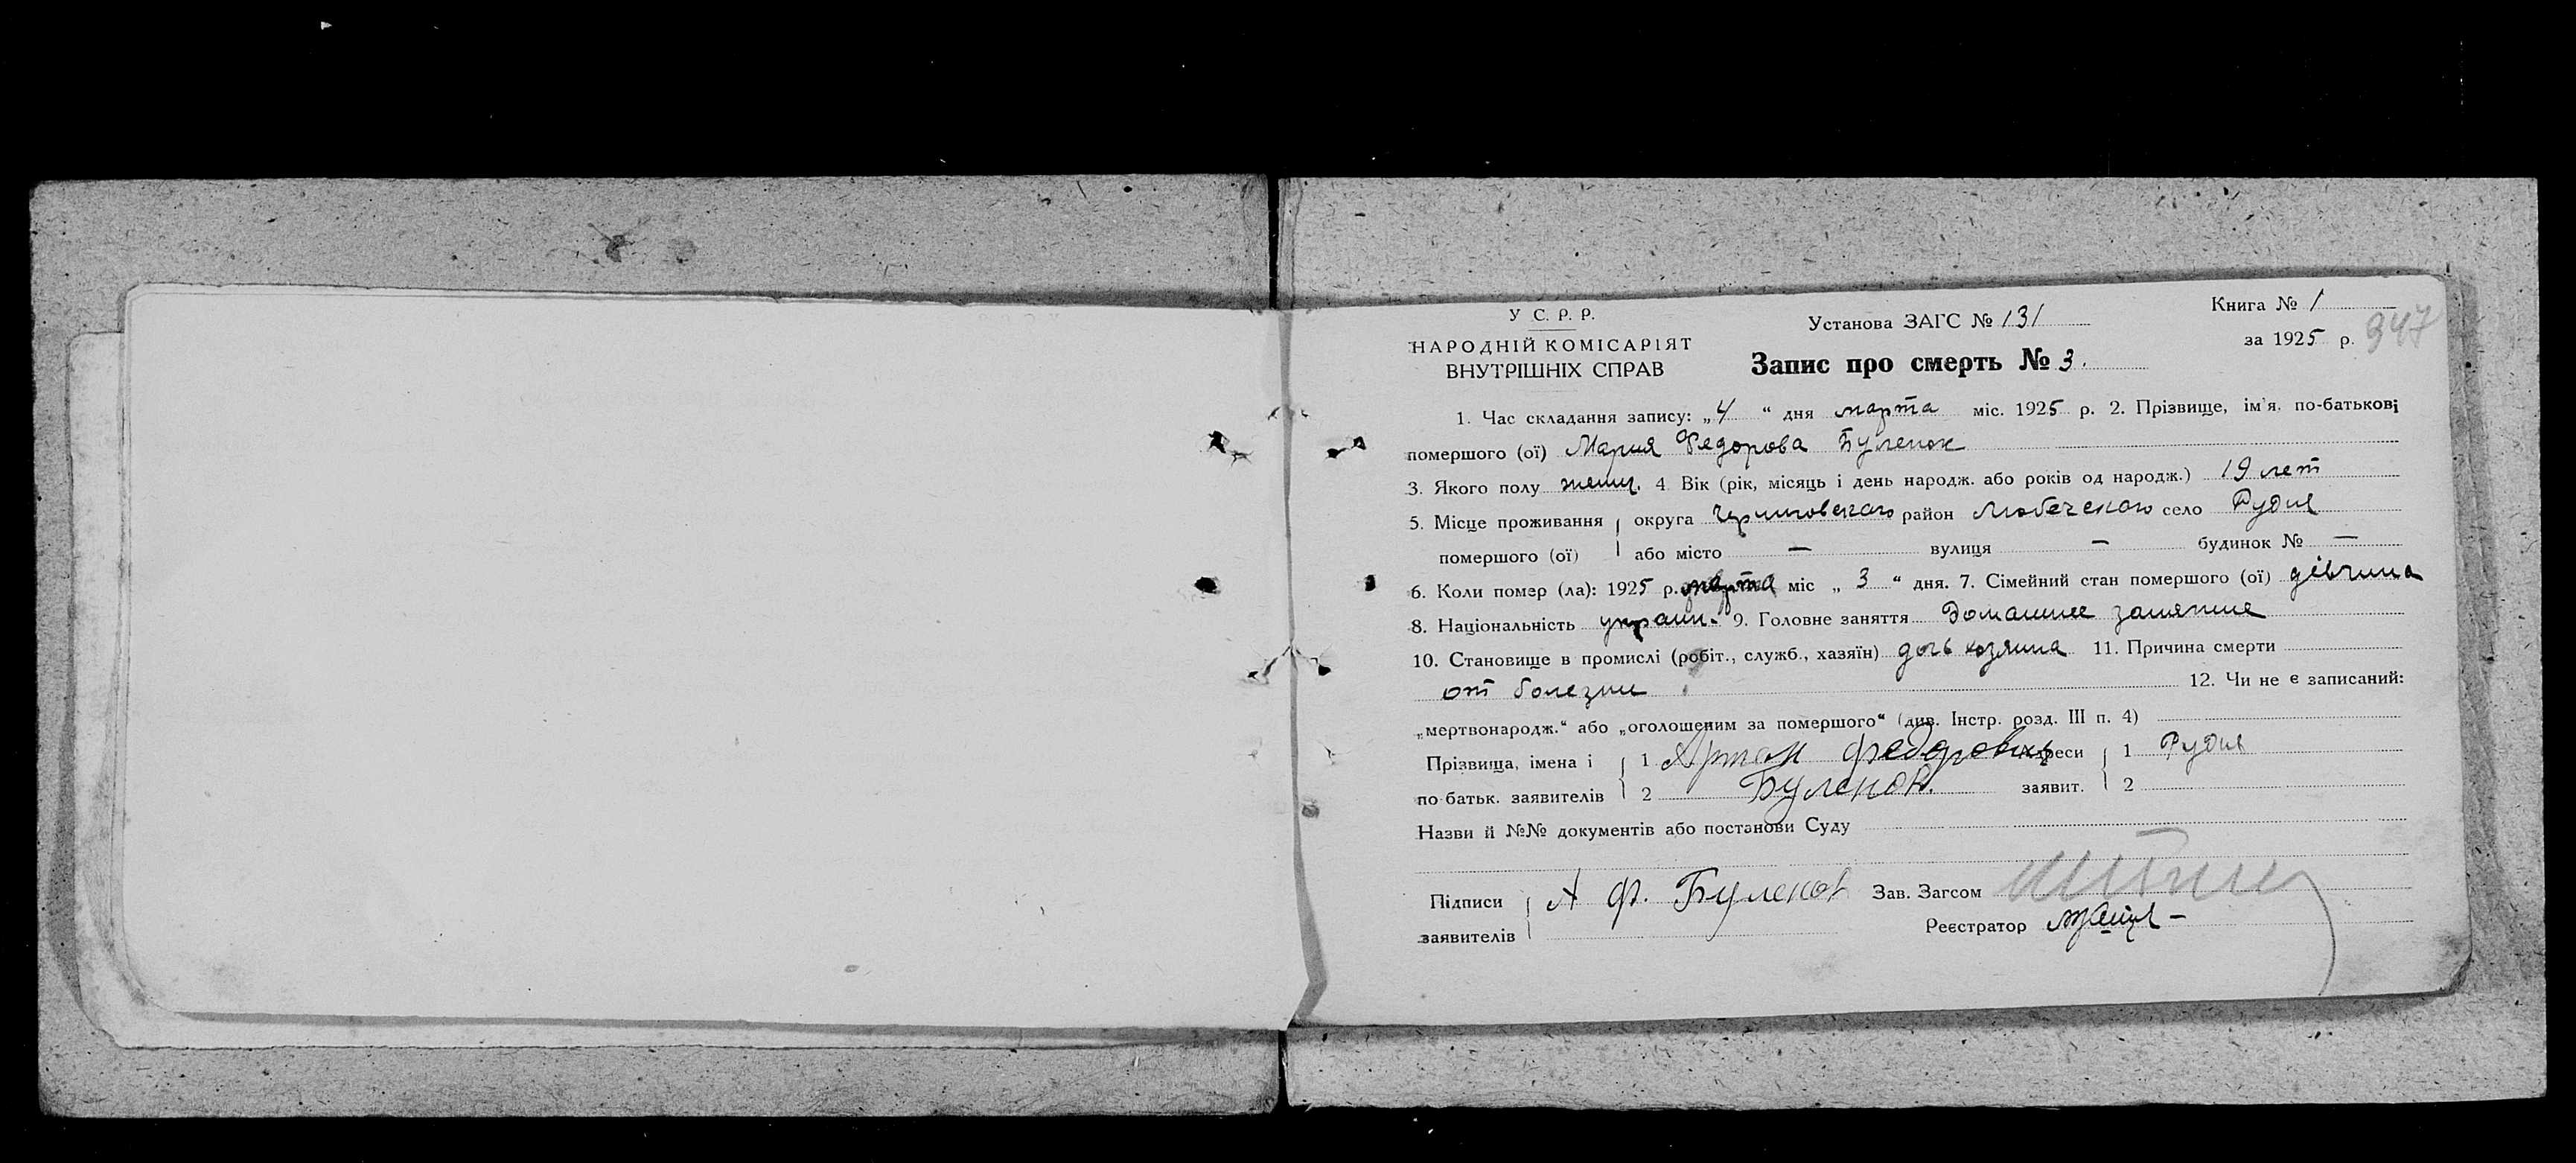 У С. Р. Р.
НАРОДНІЙ КОМІСАРІЯТ
ВНУТРІШНІХ СПРАВ
Установа ЗАГС № 131
Запис про смерть № 3.
Книга № 1
за 1925 р.
947
1. Час складання запису: „4“ дня марта міс. 1925 р. 2. Прізвище, ім'я, по-батькові
помершого (ої) Мария Федорова Буленок
3. Якого полу женщ. 4 Вік (рік, місяць і день народж. або років од народж.) 19 лет
5. Місце проживання округа Черниговского район Любечского село Рудня
помершого (ої) або місто — вулиця — будинок № —
6. Коли помер (ла): 1925 р. марта міс „ 3 “ дня. 7. Сімейний стан помершого (ої) дівчина
8. Національність украин. 9. Головне заняття Домашнее занятие
10. Становище в промислі (робіт., служб., хазяїн) дочь хозяина 11. Причина смерти
от болезни 12. Чи не є записаний:
„мертвонародж.“ або „оголошеним за помершого“ (див. Інстр. розд. III п. 4)
Прізвища, імена і 1 Артем Федорович Адреси 1 Рудня
по батьк. заявителів 2 Буленок. заявит. 2
Назви й №№ документів або постанови Суду
Підписи А Ф. Буленок Зав. Загсом
заявителів Реєстратор